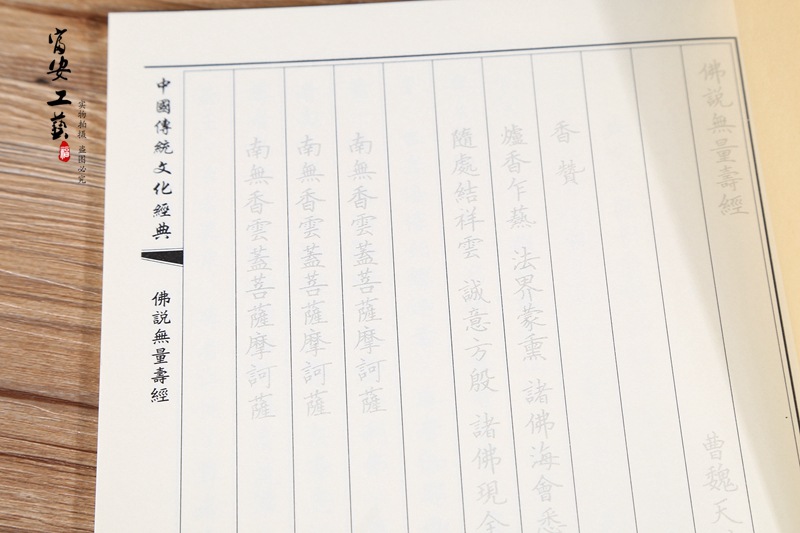 佛說無量壽經
曹魏天
香贊
爐香乍爇 法界蒙熏 諸佛海會悉
隨處結祥雲 誠意方殷 諸佛現全
南無香雲蓋菩薩摩訶薩
南無香雲蓋菩薩摩訶薩
南無香雲蓋菩薩摩訶薩
中國傳統文化經典
佛說無量壽經
富安工藝
实物拍摄 盗图必究